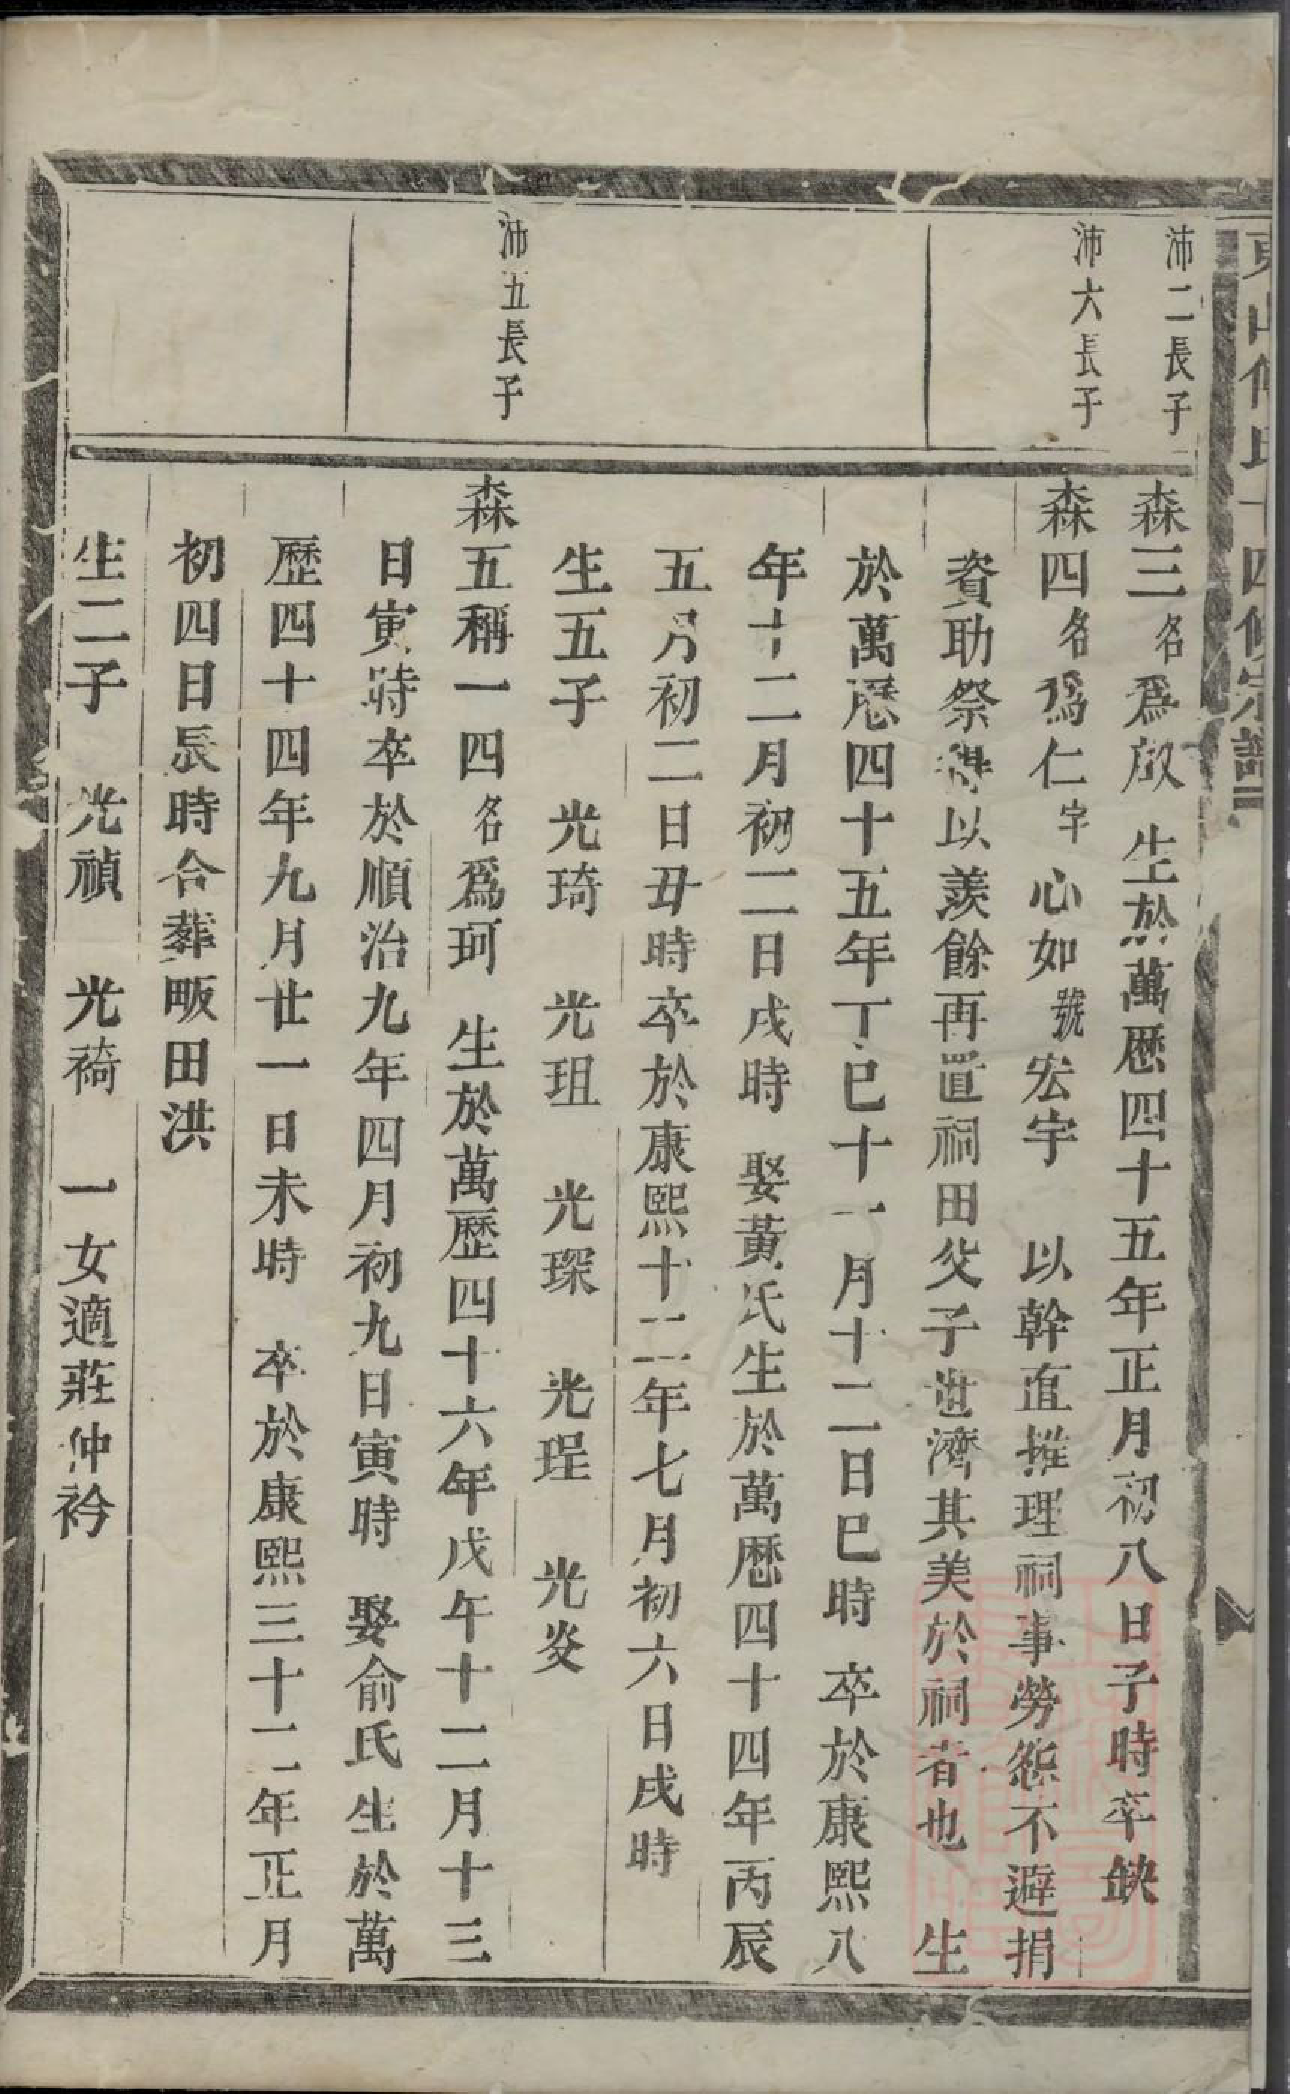 沛二長子
森三名爲啟 生於萬厯四十五年正月初八日子時卒缺
沛六長子
森四名爲仁字心如號宏宇 以幹直摧理祠事勞怨不避捐
資助祭得以羨餘再置祠田父子世濟其美於祠者也 生
於萬厯四十五年丁巳十一月十二日巳時 卒於康熙八
年十二月初二日戌時 娶黃氏生於萬厯四十四年丙辰
五月初二日丑時卒於康熙十二年七月初六日戌時
生五子 光琦 光珇 光琛 光珵 光炎
沛五長子
森五稱一四名爲珂 生於萬歷四十六年戊午十二月十三
日寅時卒於順治九年四月初九日寅時 娶俞氏生於萬
歷四十四年九月廿一日未時 卒於康熙三十二年正月
初四日辰時合葬畈田洪
生二子 光禎 光裿 一女適莊仲衿